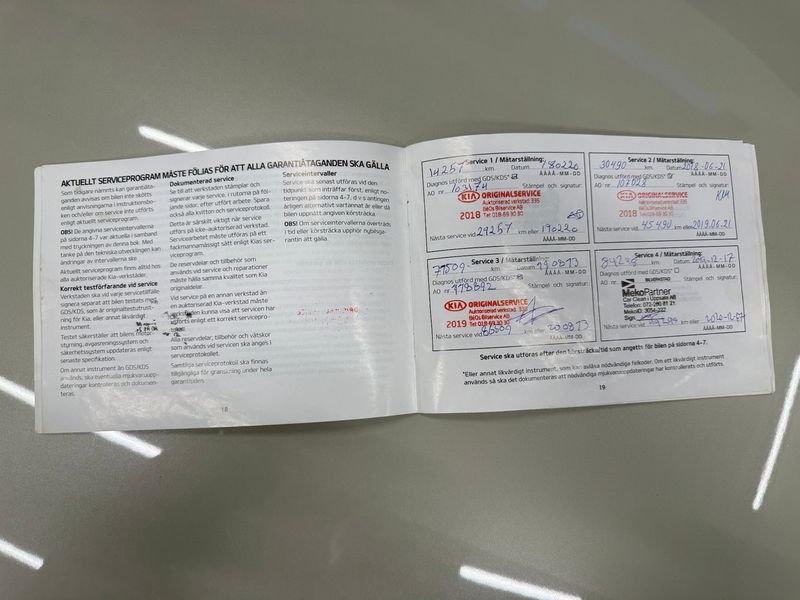 AKTUELLT SERVICEPROGRAM MÅSTE FÖLJAS FÖR ATT ALLA GARANTIÅTAGANDEN SKA GÄLLA
Som tidigare nämnts kan garantiåta-
ganden avvisas om bilen inte skötts
enligt anvisningarna i instruktionsbo-
ken och/eller om service inte utförts
enligt aktuellt serviceprogram.
OBS! De angivna serviceintervallerna
på sidorna 4-7 var aktuella i samband
med tryckningen av denna bok. Med
tanke på den tekniska utvecklingen kan
ändringar av intervallerna ske
Aktuellt serviceprogram finns alltid hos
alla auktoriserade Kia-verkstäder.
Korrekt testförfarande vid service
Verkstaden ska vid varje servicetillfälle
signera separat att bilen testats med
GDS/KDS, som är originaltestutrust-
ning för Kia, eller annat likvärdigt
instrument.
Testet säkerställer att bilens motor-
styrning, avgasreningssystem och
säkerhetssystem uppdateras enligt
senaste specifikation.
Om annat instrument än GDS/KDS
används, ska eventuella mjukvaruupp-
dateringar kontrolleras och dokumen-
teras.
Dokumenterad service
Se till att verkstaden stämplar och
signerar varje service, i rutorna på föl-
jande sidor, efter utfört arbete. Spara
också alla kvitton och serviceprotokoll.
Detta är särskilt viktigt när service
utförs på icke-auktoriserad verkstad.
Servicearbetet måste utföras på ett
fackmannamässigt sätt enligt Kias ser-
viceprogram.
De reservdelar och tillbehör som
används vid service och reparationer
måste hålla samma kvalitet som Kia
originaldelar.
Vid service på en annan verkstad än
en auktoriserad Kia-verkstad måste
kunna visa att servicen har
utförts enligt ett korrekt servicepro-
Alla reservdelar, tillbehör och vätskor
som används vid servicen ska anges i
serviceprotokollet.
Samtliga serviceprotokoll ska finnas
tillgängliga för granskning under hela
garantitiden.
Serviceintervaller
Service ska senast utföras vid den
tidpunkt som inträffar först, enligt no-
teringen på sidorna 4-7, d v s antingen
årligen alternativt vartannat år eller då
bilen uppnått angiven körsträcka
OBS! Om serviceintervallerna överträds
i tid eller körsträcka upphör nybilsga-
rantin att gälla.
18
Service 1 / Mätarställning:
14257 km. Datum 180220
Diagnos utförd med GDS/KDS* ÅÅÅÅ-MM-DD
AO nr. 103174 Stämpel och signatur:
KIA ORIGINALSERVICE
Auktoriserad verkstad: 335
BilOs Bilservice AB
2018 Tel: 018-69 30 30
Nästa service vid 29257 km eller 190220
ÅÅÅÅ-MM-DD
Service 2 / Mätarställning:
30490 km. Datum 2018-06-21
Diagnos utförd med GDS/KDS* ÅÅÅÅ-MM-DD
AO nr. 107028 Stämpel och signatur:
KIA ORIGINALSERVICE
2018
Nästa service vid 45490 km eller 2019.06.21
ÅÅÅÅ-MM-DD
Service 3 / Mätarställning:
Datum 190813
Diagnos utförd med GDS/KDS* ÅÅÅÅ-MM-DD
AO nr. Stämpel och signatur:
KIA ORIGINALSERVICE
Auktoriserad verkstad: 335
BilOs Bilservice AB
2019 Tel: 018-69 30 30
Nästa service vid km eller 200813
ÅÅÅÅ-MM-DD
Service 4 / Mätarställning:
km. Datum
Diagnos utförd med GDS/KDS* ÅÅÅÅ-MM-DD
AO nr. Stämpel och signatur:
BILVERKSTAD
MekoPartner
Car Clean i Uppsala AB
Telefon: 072-280 81 21
MekoID: 3054-222
Sign.
Nästa service vid km eller 2020-12-17
ÅÅÅÅ-MM-DD
Service ska utföras efter den körsträcka/tid som angetts för bilen på sidorna 4-7.
*Eller annat likvärdigt instrument, som kan avläsa nödvändiga felkoder. Om ett likvärdigt instrument
används så ska det dokumenteras att nödvändiga mjukvaruuppdateringar har kontrollerats och utförts.
19